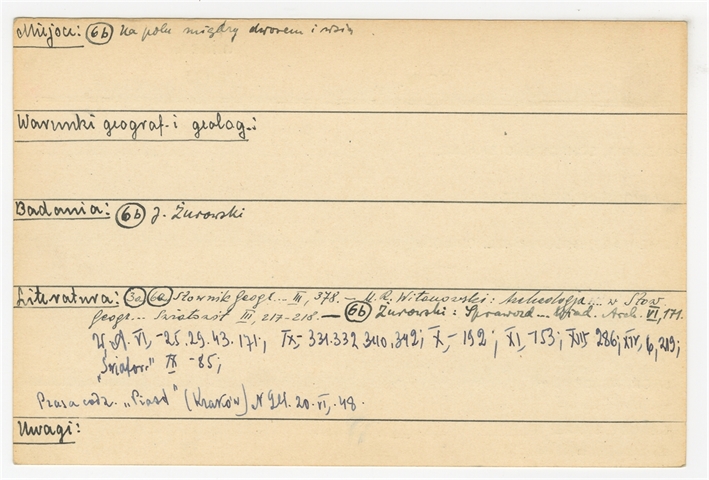 Miejsce: (6b) na polu między dworem i wsią.
Warunki geograf-i geolog-i
Badania: (6b) J. Żurowski
Literatura: (3a) (6a) Słownik Geogr... III, 378. – M.R. Witanowski: Archeologja... w Słow.
geogr... Światowit III, 217-218. – (6b) Żurowski: Sprawozd... Wiad. Arch. VI, 171.
W.A. VI, -25.29.43.171; IX,- 331.332 340.342; X,- 192; XI,- 153; XIII, 286; XIV, 6, 219;
"Światow." IX - 85;
Prasa codz. „Piast" (Kraków) N 241. 20. VI, 48.
Uwagi: